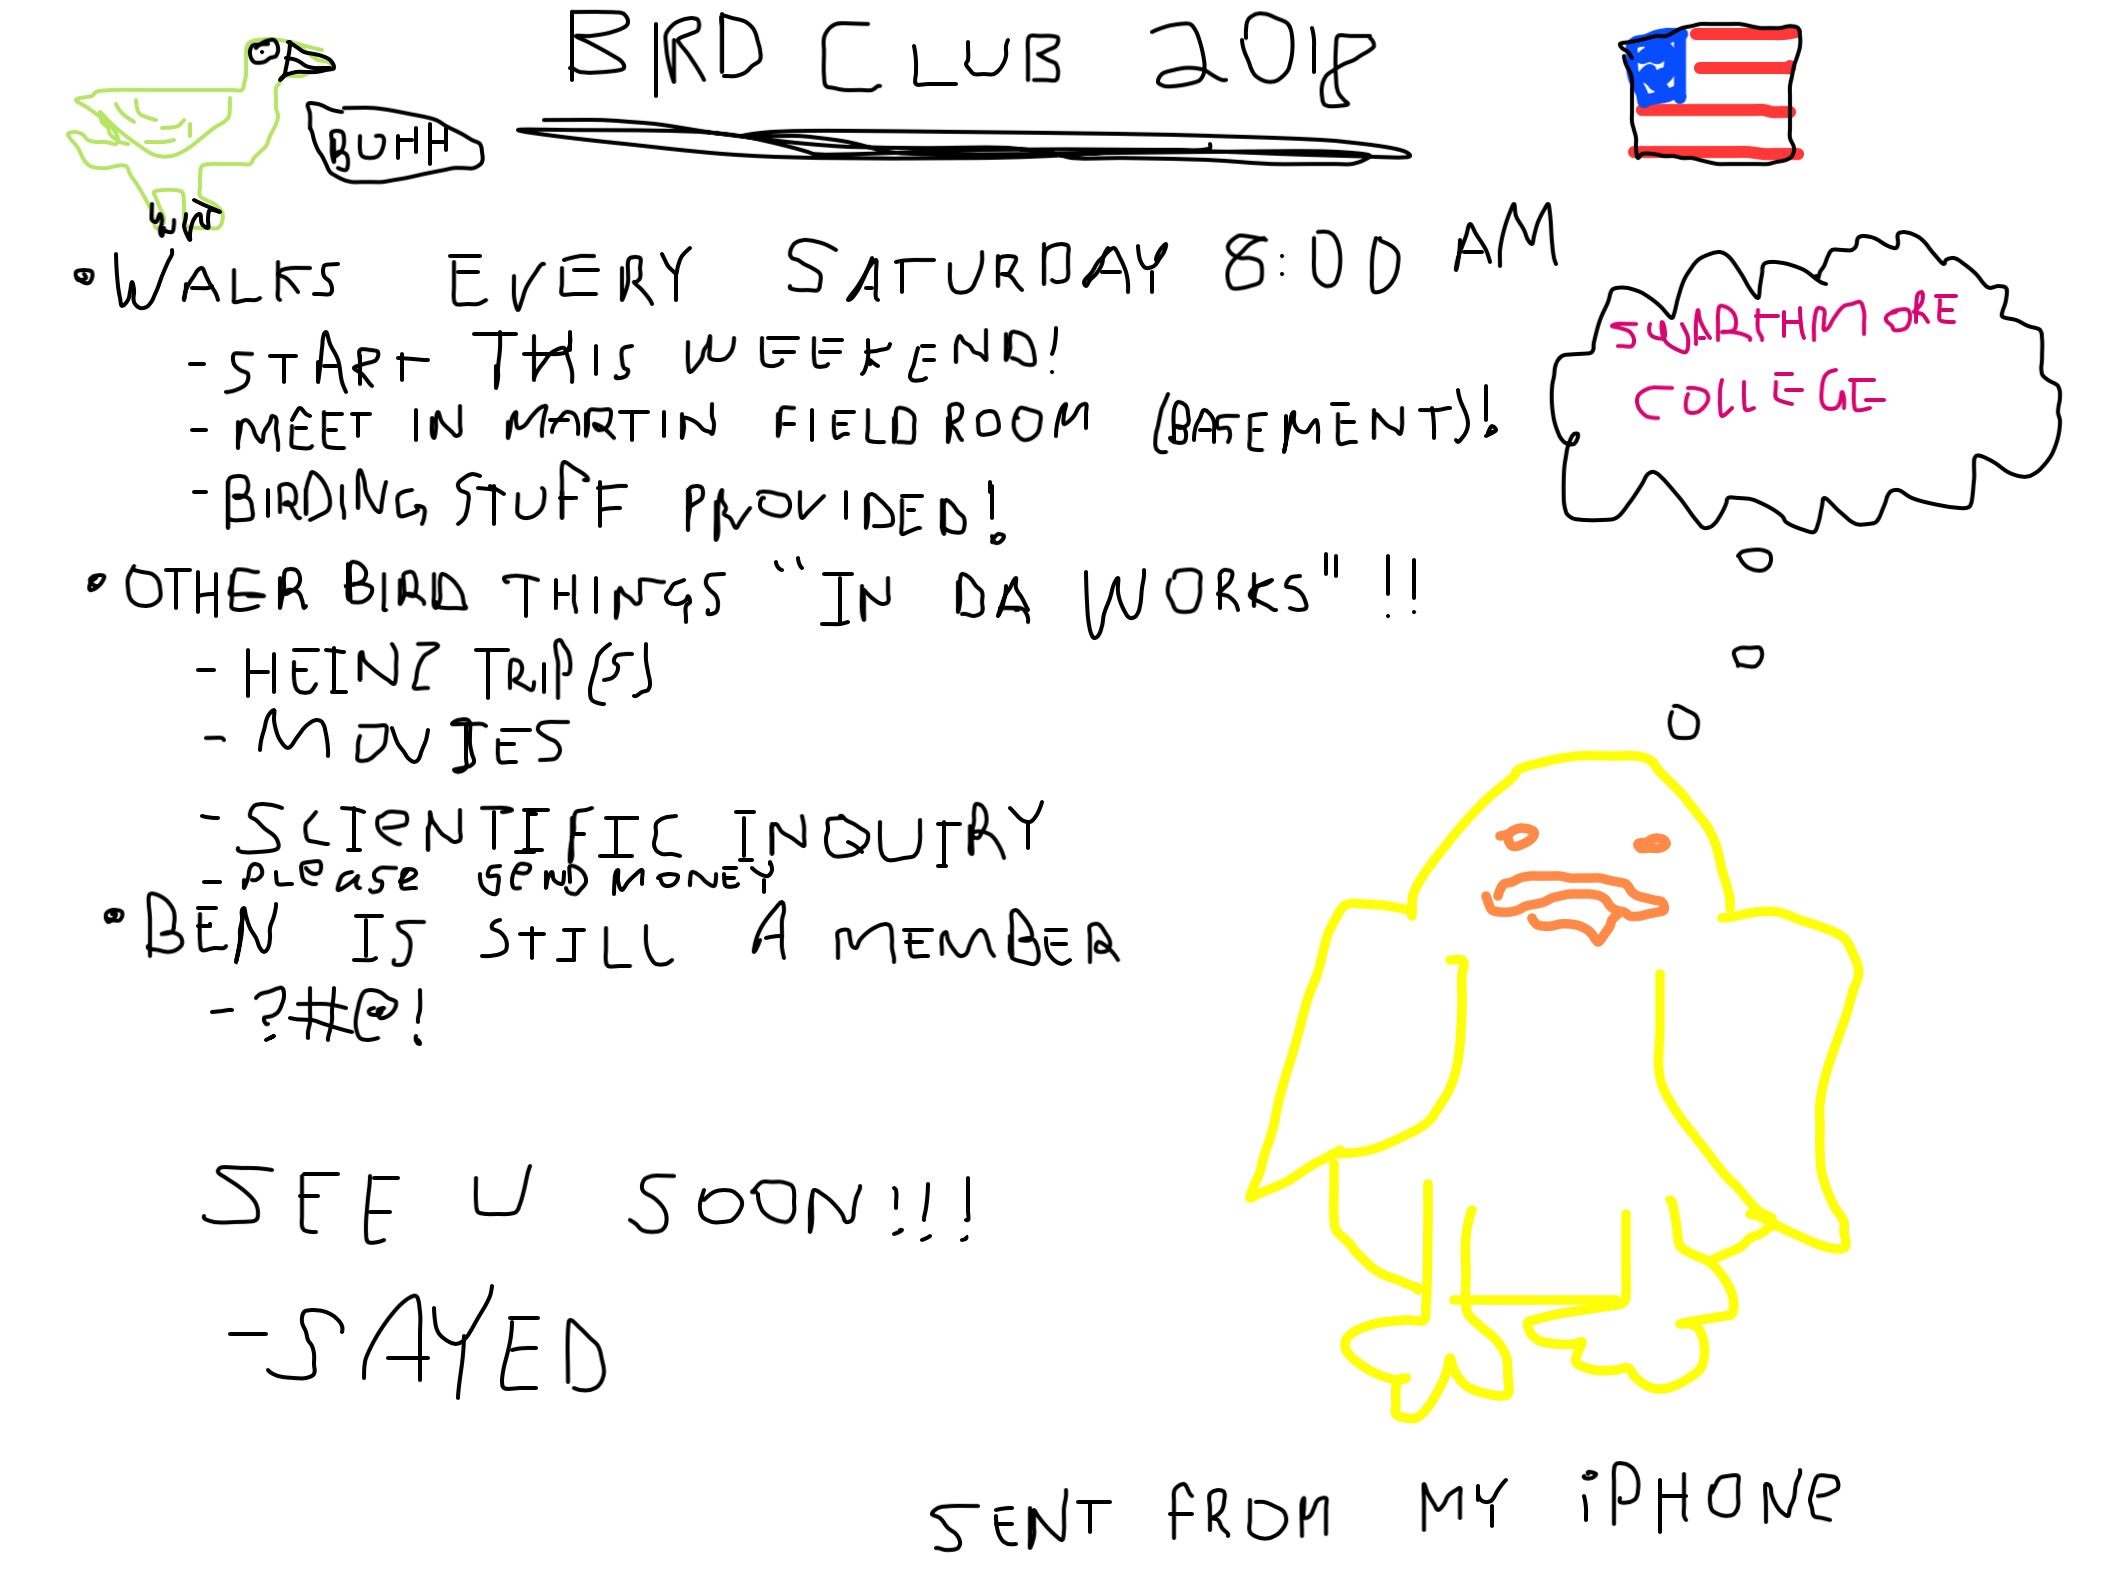 BIRD CLUB 2018
BUHH
• WALKS EVERY SATURDAY 8:00 AM
- START THIS WEEKEND!
- MEET IN MARTIN FIELD ROOM (BASEMENT)!
- BIRDING STUFF PROVIDED!
• OTHER BIRD THINGS "IN DA WORKS"!!
- HEINZ TRIP(S)
- MOVIES
- SCIeNTIFIC INQUIRY
- PLeaSe SeND MONEY
• BEN IS STILL A MEMBER
- ?#@!
SWARTHMORE
COLLEGE
SEE U SOON!!!
-SAYED
SENT FROM MY iPHONe